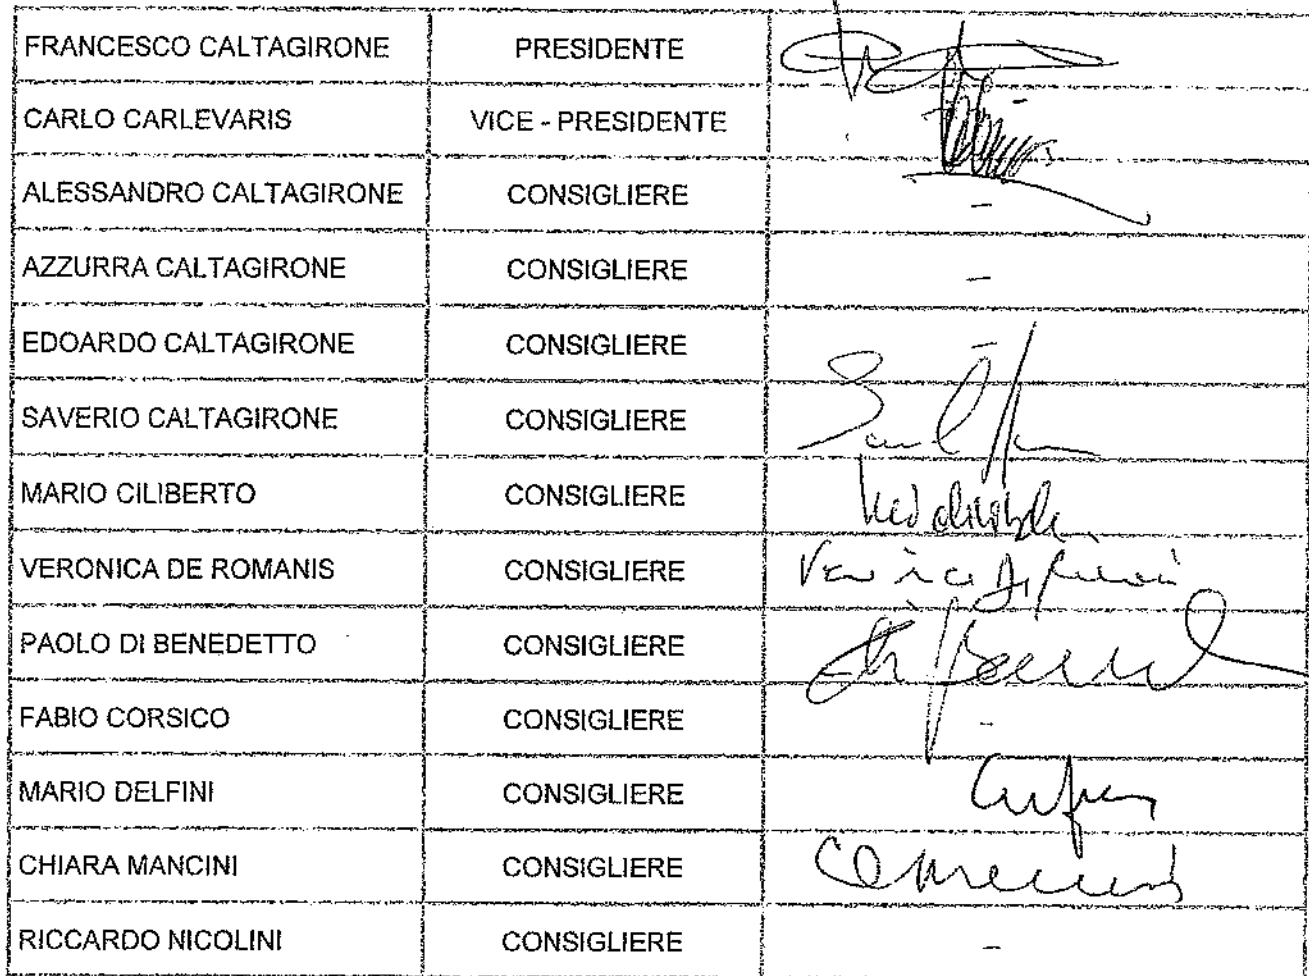 FRANCESCO CALTAGIRONE PRESIDENTE
CARLO CARLEVARIS VICE - PRESIDENTE
ALESSANDRO CALTAGIRONE CONSIGLIERE -
AZZURRA CALTAGIRONE CONSIGLIERE -
EDOARDO CALTAGIRONE CONSIGLIERE -
SAVERIO CALTAGIRONE CONSIGLIERE
MARIO CILIBERTO CONSIGLIERE
VERONICA DE ROMANIS CONSIGLIERE
PAOLO DI BENEDETTO CONSIGLIERE
FABIO CORSICO CONSIGLIERE -
MARIO DELFINI CONSIGLIERE
CHIARA MANCINI CONSIGLIERE
RICCARDO NICOLINI CONSIGLIERE -